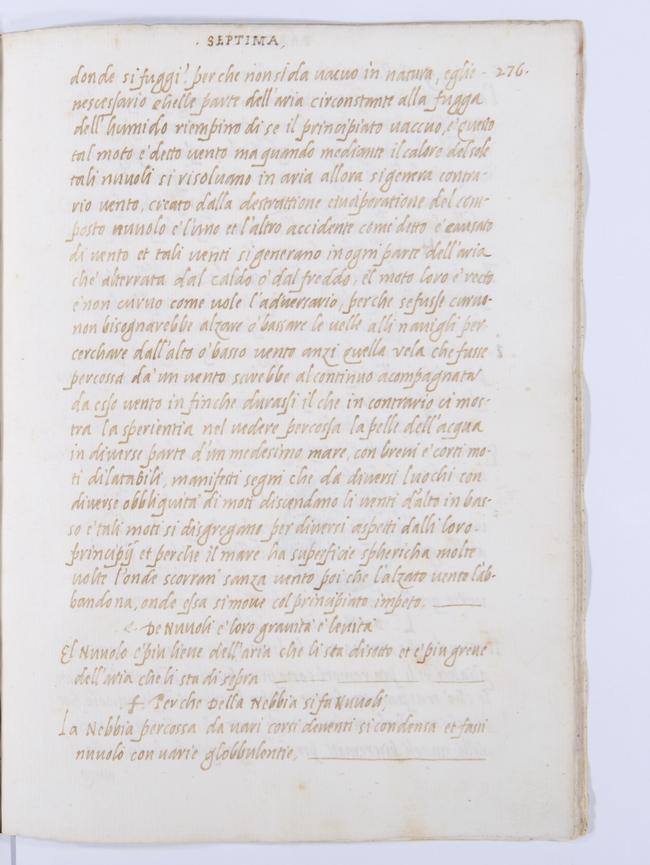 . SEPTIMA,
donde si fuggi? perche non si da vacuo in natura, eglie - 276.
nescessario chelle parte dell'aria circonstante alla fugga
dell'humido riempino di se il principiato vaccuo, e questo
tal moto e' detto vento ma quando mediante il calore del sole
tali nuvoli si risolvano in aria allora si genera contra-
rio vento, creato dalla destrattione evaporatione del com-
posto nuvolo e l'uno et l'altro accidente come detto e' causato
di vento et tali venti si generano in ogni parte dell'aria
che' alterrata dal caldo o' dal freddo, il moto loro e' recto
e' non curvo come vole l'adversario, perche se fusse curvo
non bisognarebbe alzare o' bassare le velle alli navigli per
cerchare dall'alto o' basso vento anzi quella vela che fusse
percossa da' un vento sarebbe al continuo acompagnata
da esso vento in finche durassi il che in contrario ci mos-
tra la sperientia nel vedere percossa la pelle dell'acqua
in diverse parte d'un medesimo mare, con brevi e' corti mo-
ti dilatabili, manifesti segni che da diversi luochi con
diverse obbliquita' di moti discendano li venti d'alto in bas-
so e' tali moti si disgregano per diversi aspeti dalli loro
principij et perche il mare ha superficie sphericha molte
volte l'onde scorran' sanza vento poi che l'alzato vento l'ab-
bandona, onde essa si move col principiato impeto.
De Nuvoli e' loro gravita' e' levita'
El Nuvolo e' piu lieve dell'aria che li sta disotto et e' piu greve
dell'aria che li sta di sopra
Perche Della Nebbia si fa Nuvoli,
La Nebbia percossa da vari corsi deventi si condensa et fassi
nuvolo con varie globbulentie,